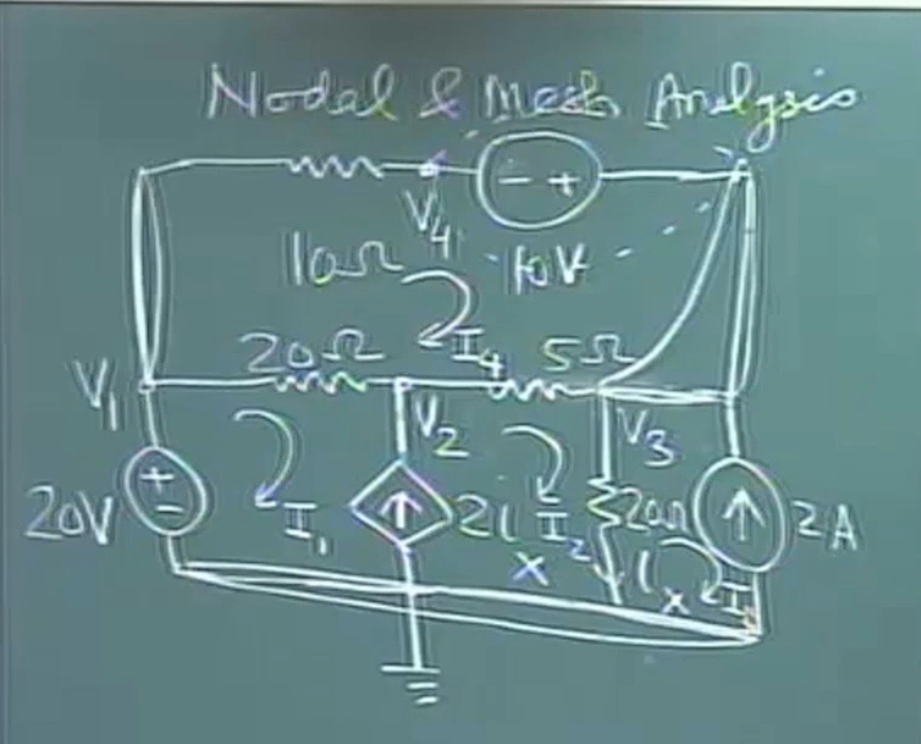 Nodal & Mesh Analysis
- +
V4
10Ω
10V
I4
20Ω
5Ω
V1
V2
V3
20V
+
-
I1
2ix
I2
20Ω
2A
ix
I3